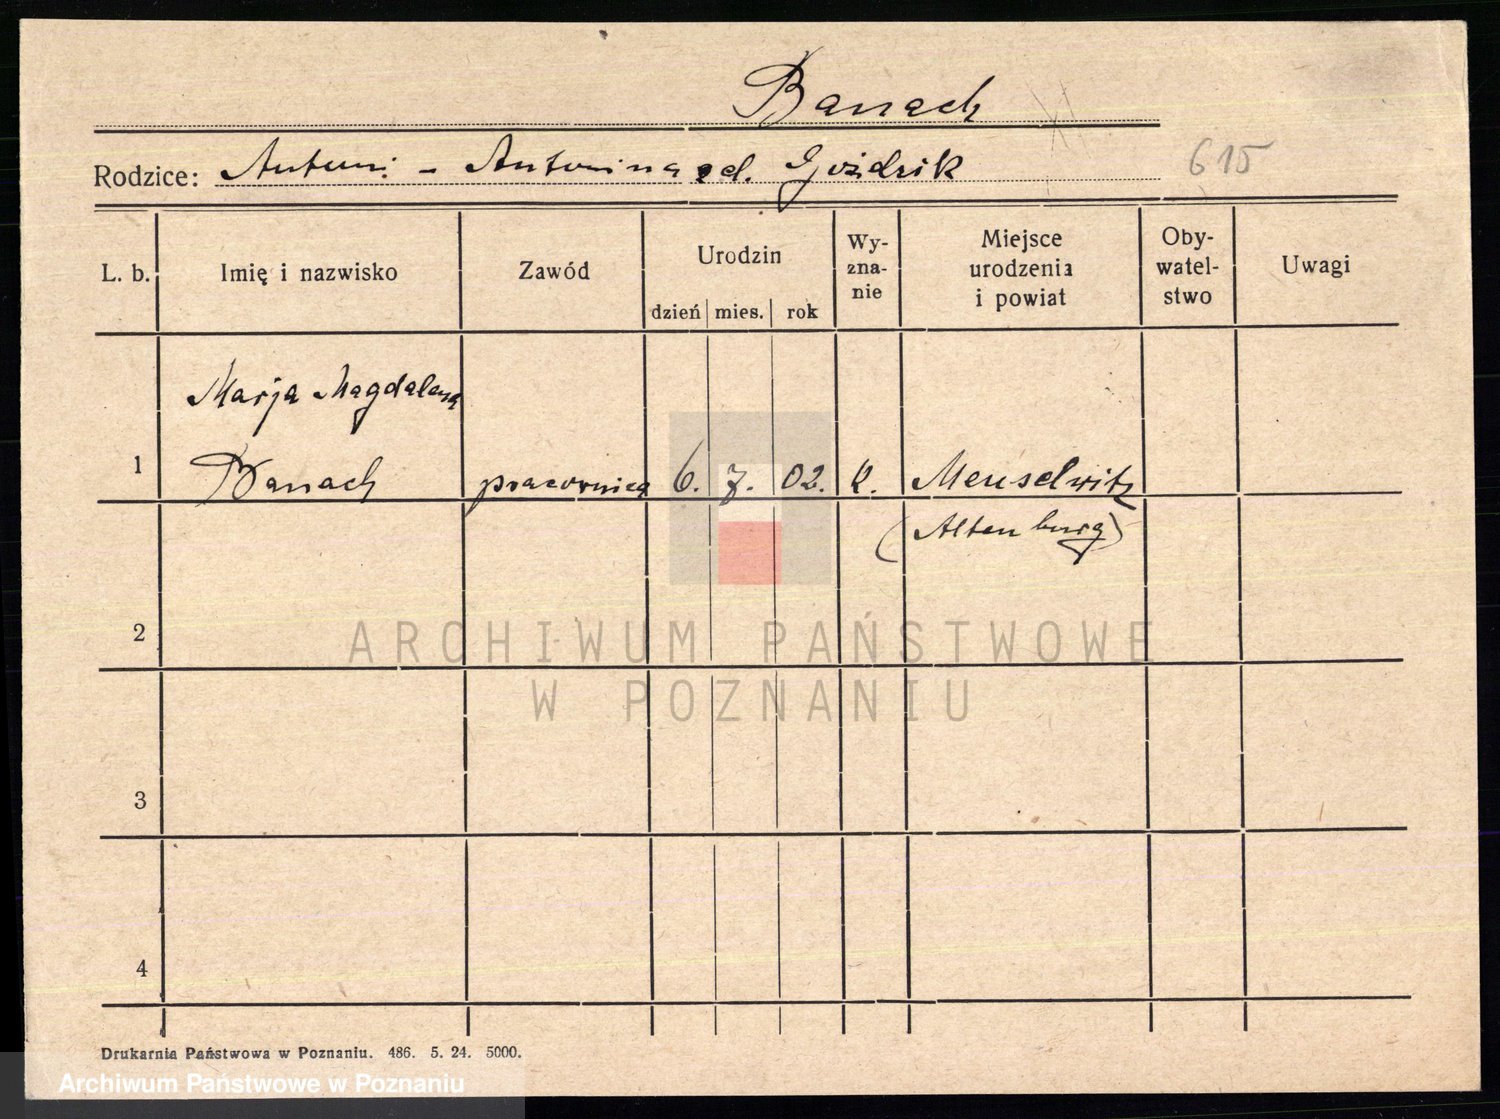 Banach
Rodzice: Antoni - Antonina zd. Goździk
615
L. b. Imię i nazwisko Zawód Urodzin dzień mies. rok Wy-zna-nie Miejsce urodzenia i powiat Oby-watel-stwo Uwagi
Marja Magdalena
1 Banach pracownica 6. 7. 02. k. Meuselwitz
(Altenburg)
2
3
4
ARCHIWUM PAŃSTWOWE
W POZNANIU
Drukarnia Państwowa w Poznaniu. 486. 5. 24. 5000.
Archiwum Państwowe w Poznaniu